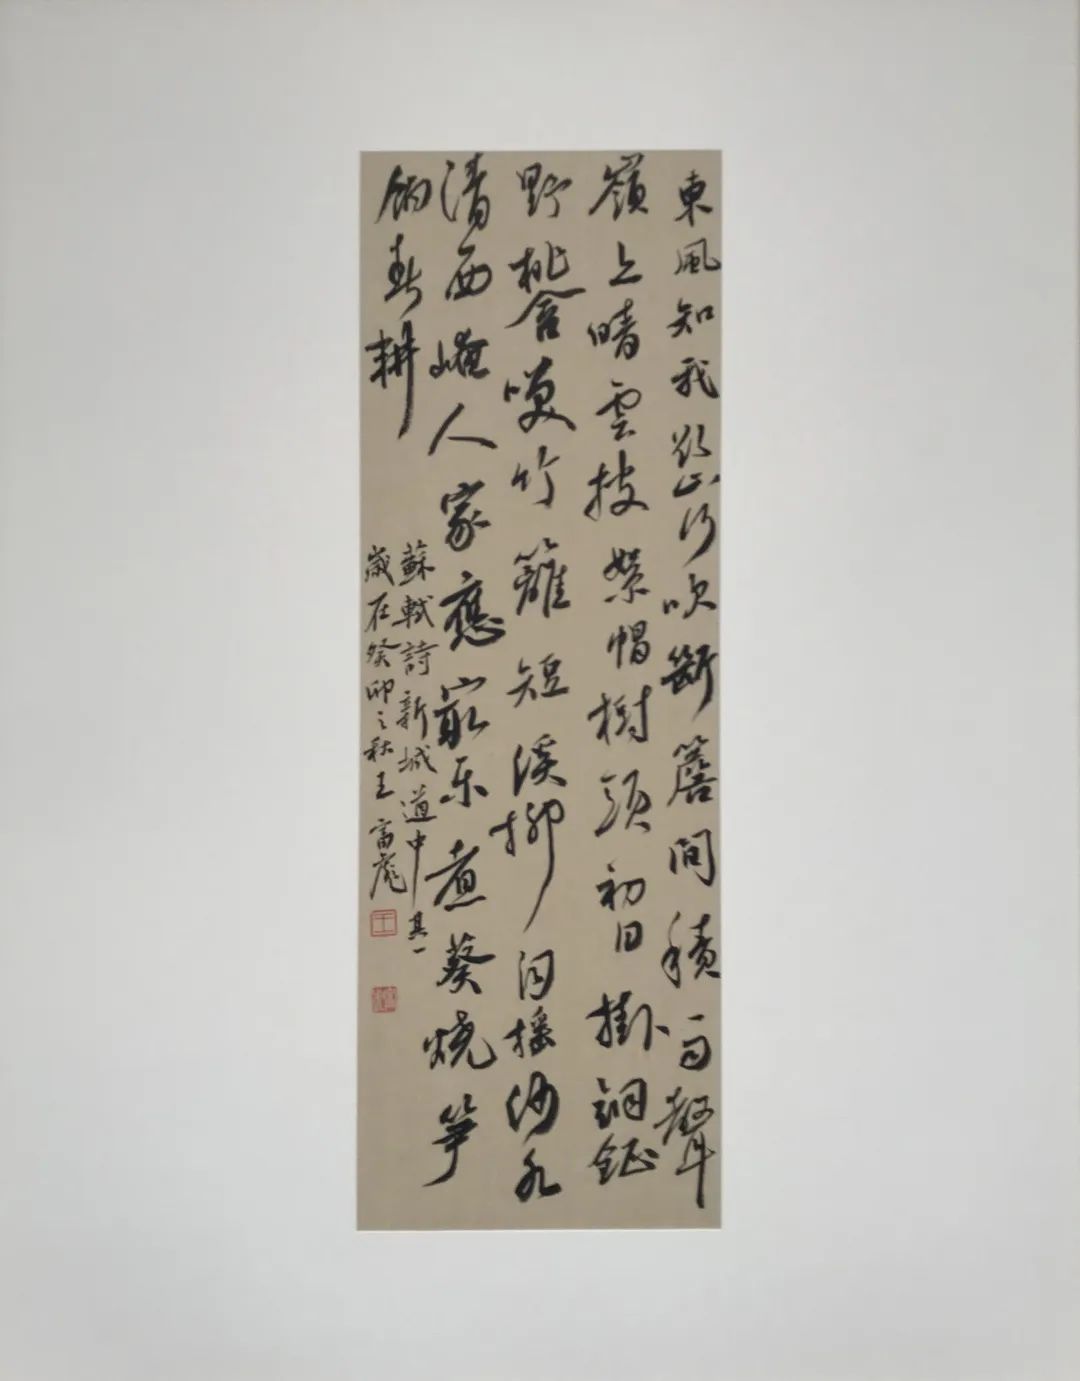 東風知我欲山行吹斷簷間積雨聲
嶺上晴雲披絮帽樹頭初日掛銅鉦
野桃含咲竹籬短溪柳自搖沙水
清西崦人家應最樂煮葵燒筍
餉春耕
蘇軾詩新城道中其一
歲在癸卯之秋王富彪
王